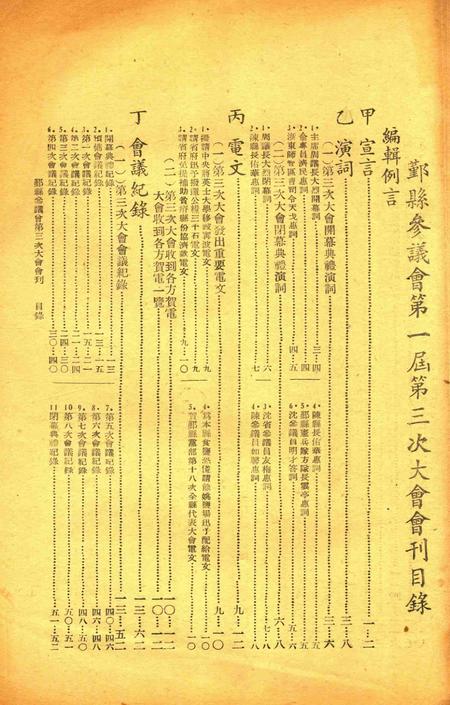 鄞縣參議會第一屆第三次大會會刊目錄
編輯例言
甲 宣言……一·二
乙 演詞……三·八
(一)第三次大會開幕典禮演詞……三·六
1·主席周議長大烈開幕詞……三·四
2·俞專員濟民惠詞……四
3·浙東師管區曹司令天戈惠詞……四·五
4·陳縣長佑華惠詞……五
5·鄞縣憲兵隊方隊長雲亭惠詞……五
6·沈參議員明才答詞……五·六
(二)第三次大會閉幕典禮演詞……六·八
1·周議長大烈閉幕詞……六
2·陳縣長佑華惠詞……七
3·沈省參議員友梅惠詞……七·八
4·陳參議員如馨惠詞……八
丙 電文……九·一二
(一)第三次大會發出重要電文……九·一〇
1·擬請中央將英士大學移設寧波電文……九
2·請省府迅予撥還公糧三千石電文……九
3·請省府從速補助省府縣份協濟款電文……九·一〇
5·賀鄞縣黨部第十八次全縣代表大會電文……一〇
(二)第三次大會收到各方賀電……一〇·一二
大會收到各方賀電一覽……一〇·一二
丁 會議紀錄……一三·六二
(一)第三次大會會議紀錄……一三·五二
1·開幕典禮紀錄……一三
2·預備會議紀錄……一三·一五
3·第一次會議紀錄……一五·二一
4·第二次會議紀錄……二一·二四
5·第三次會議紀錄……二四·三〇
6·第四次會議紀錄……三〇·四〇
7·第五次會議紀錄……四〇·四六
8·第六次會議紀錄……四六·四八
9·第七次會議紀錄……四八·五〇
10·第八次會議紀錄……五〇·五一
11·閉幕典禮紀錄……五一·五二
鄞縣參議會第三次大會會刊 目錄